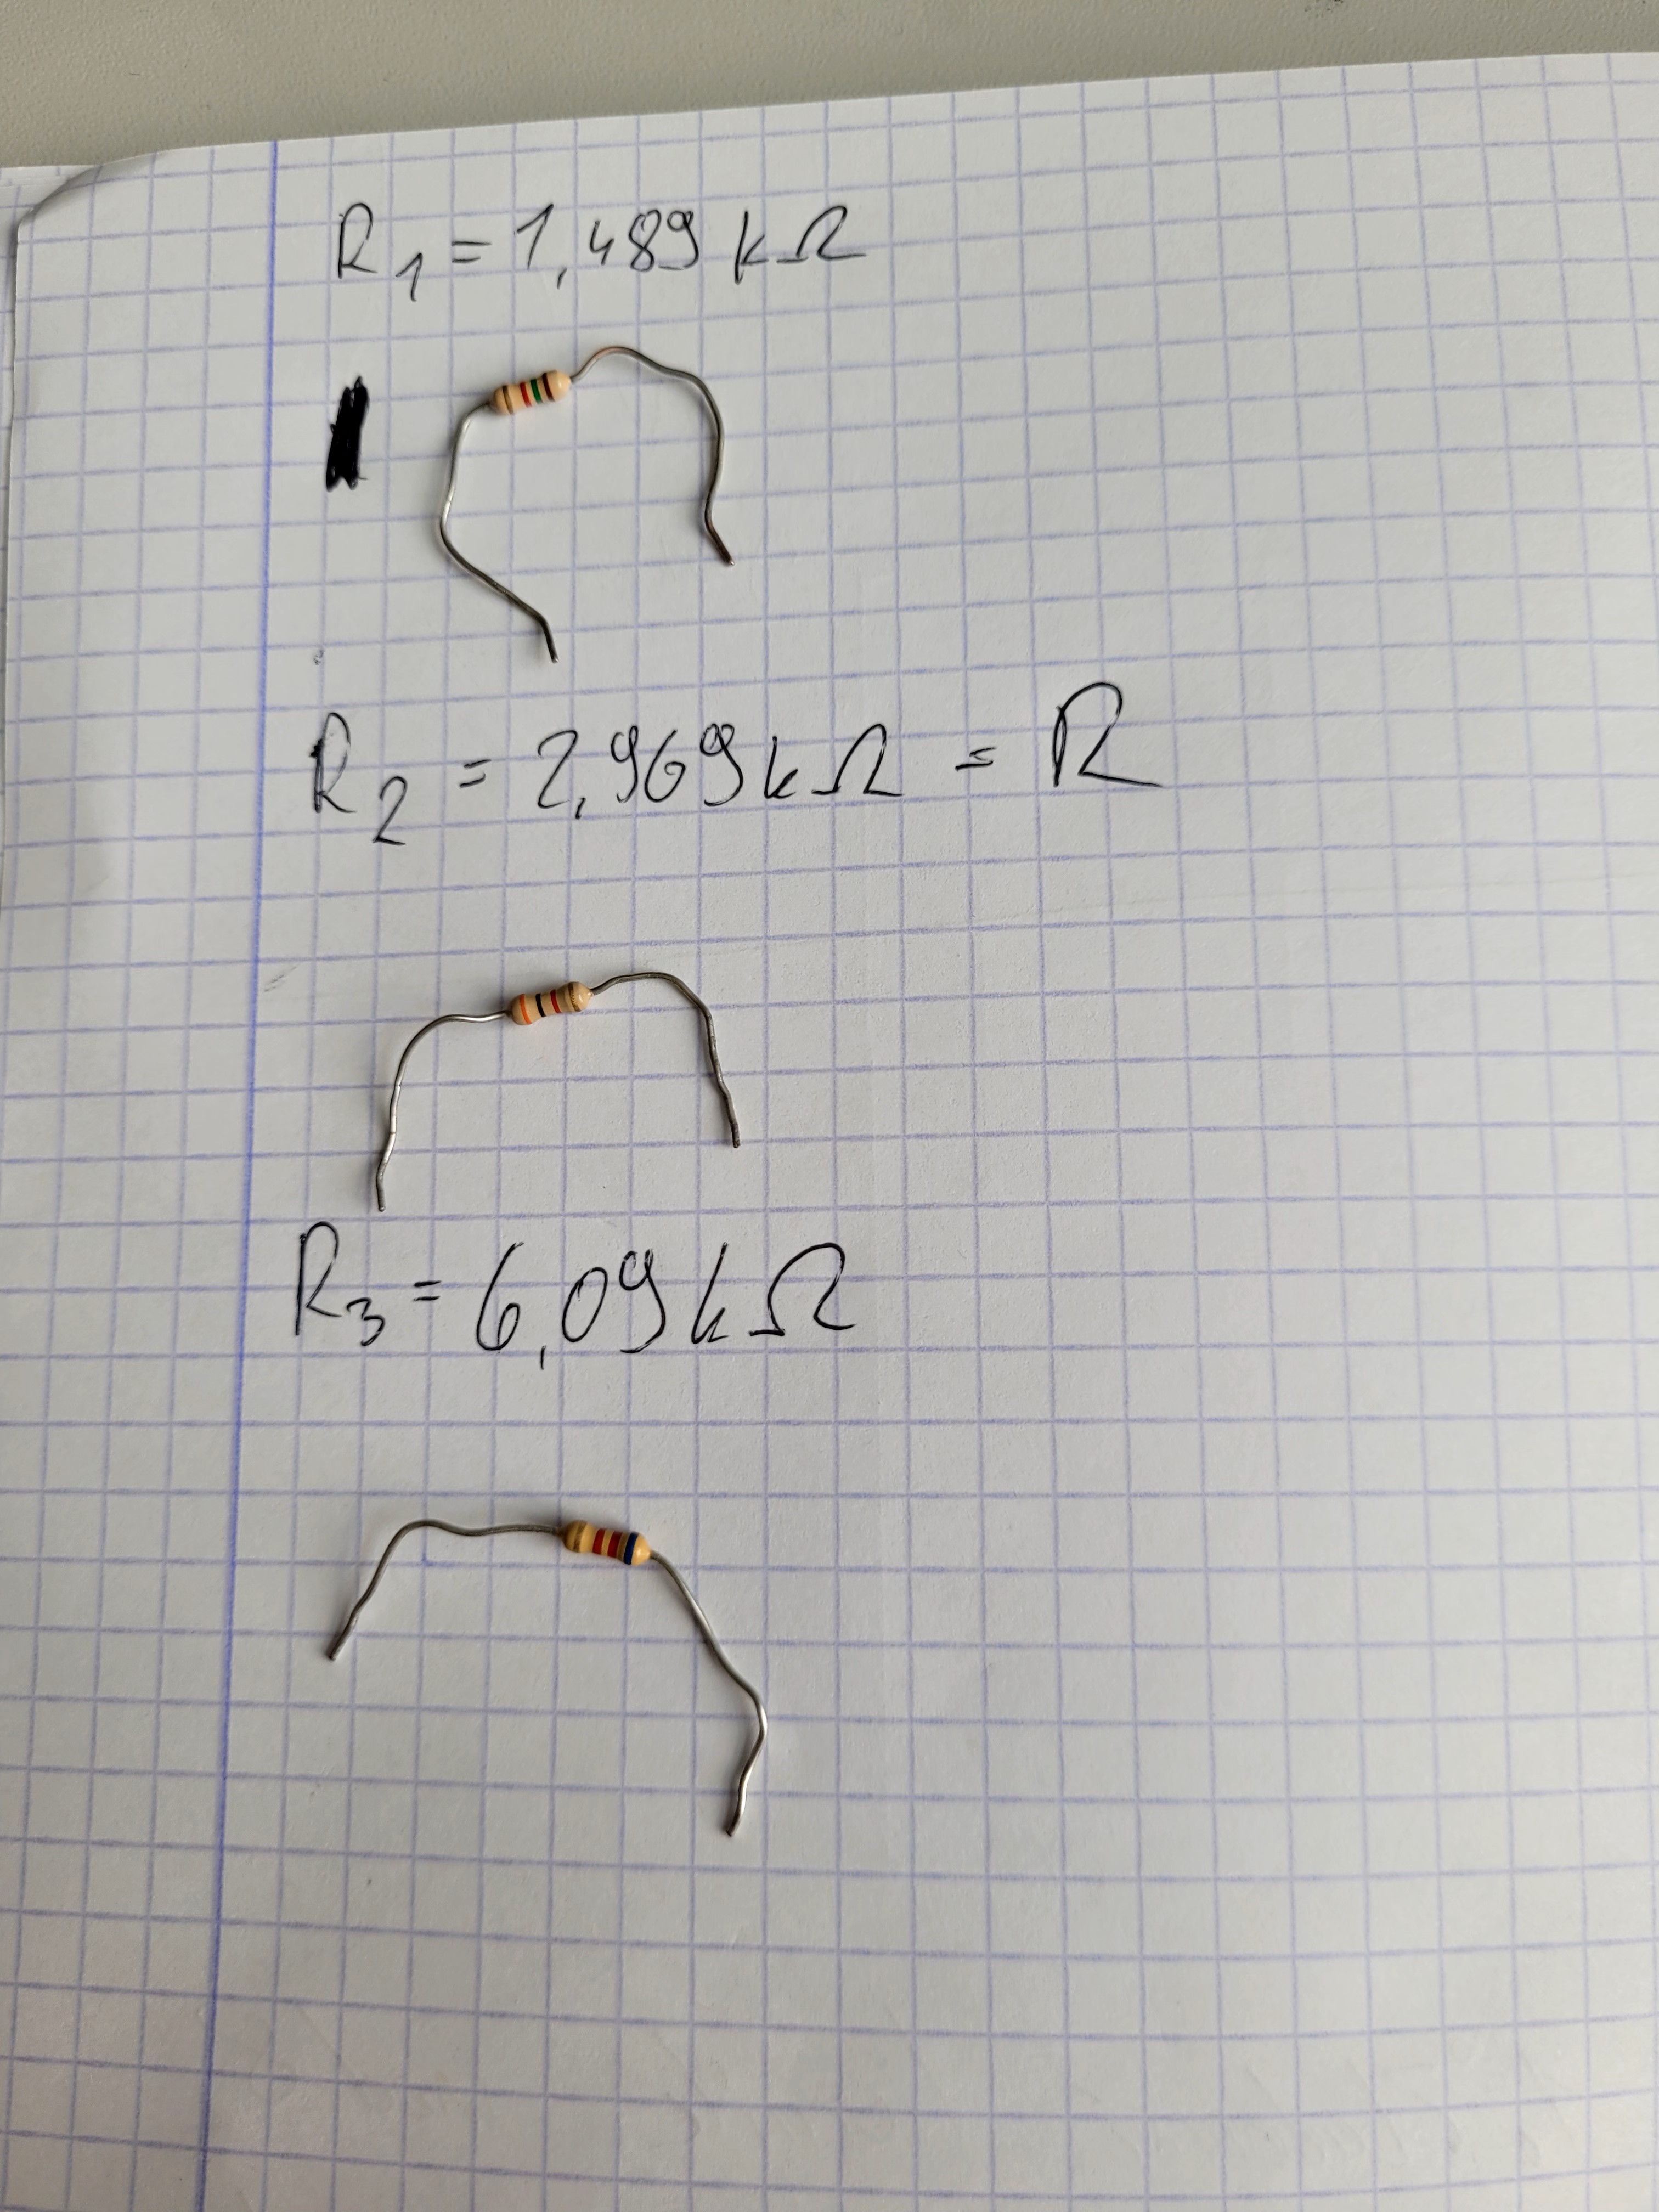 R₁ = 1,489 kΩ
R₂ = 2,969 kΩ = R
R₃ = 6,09 kΩ